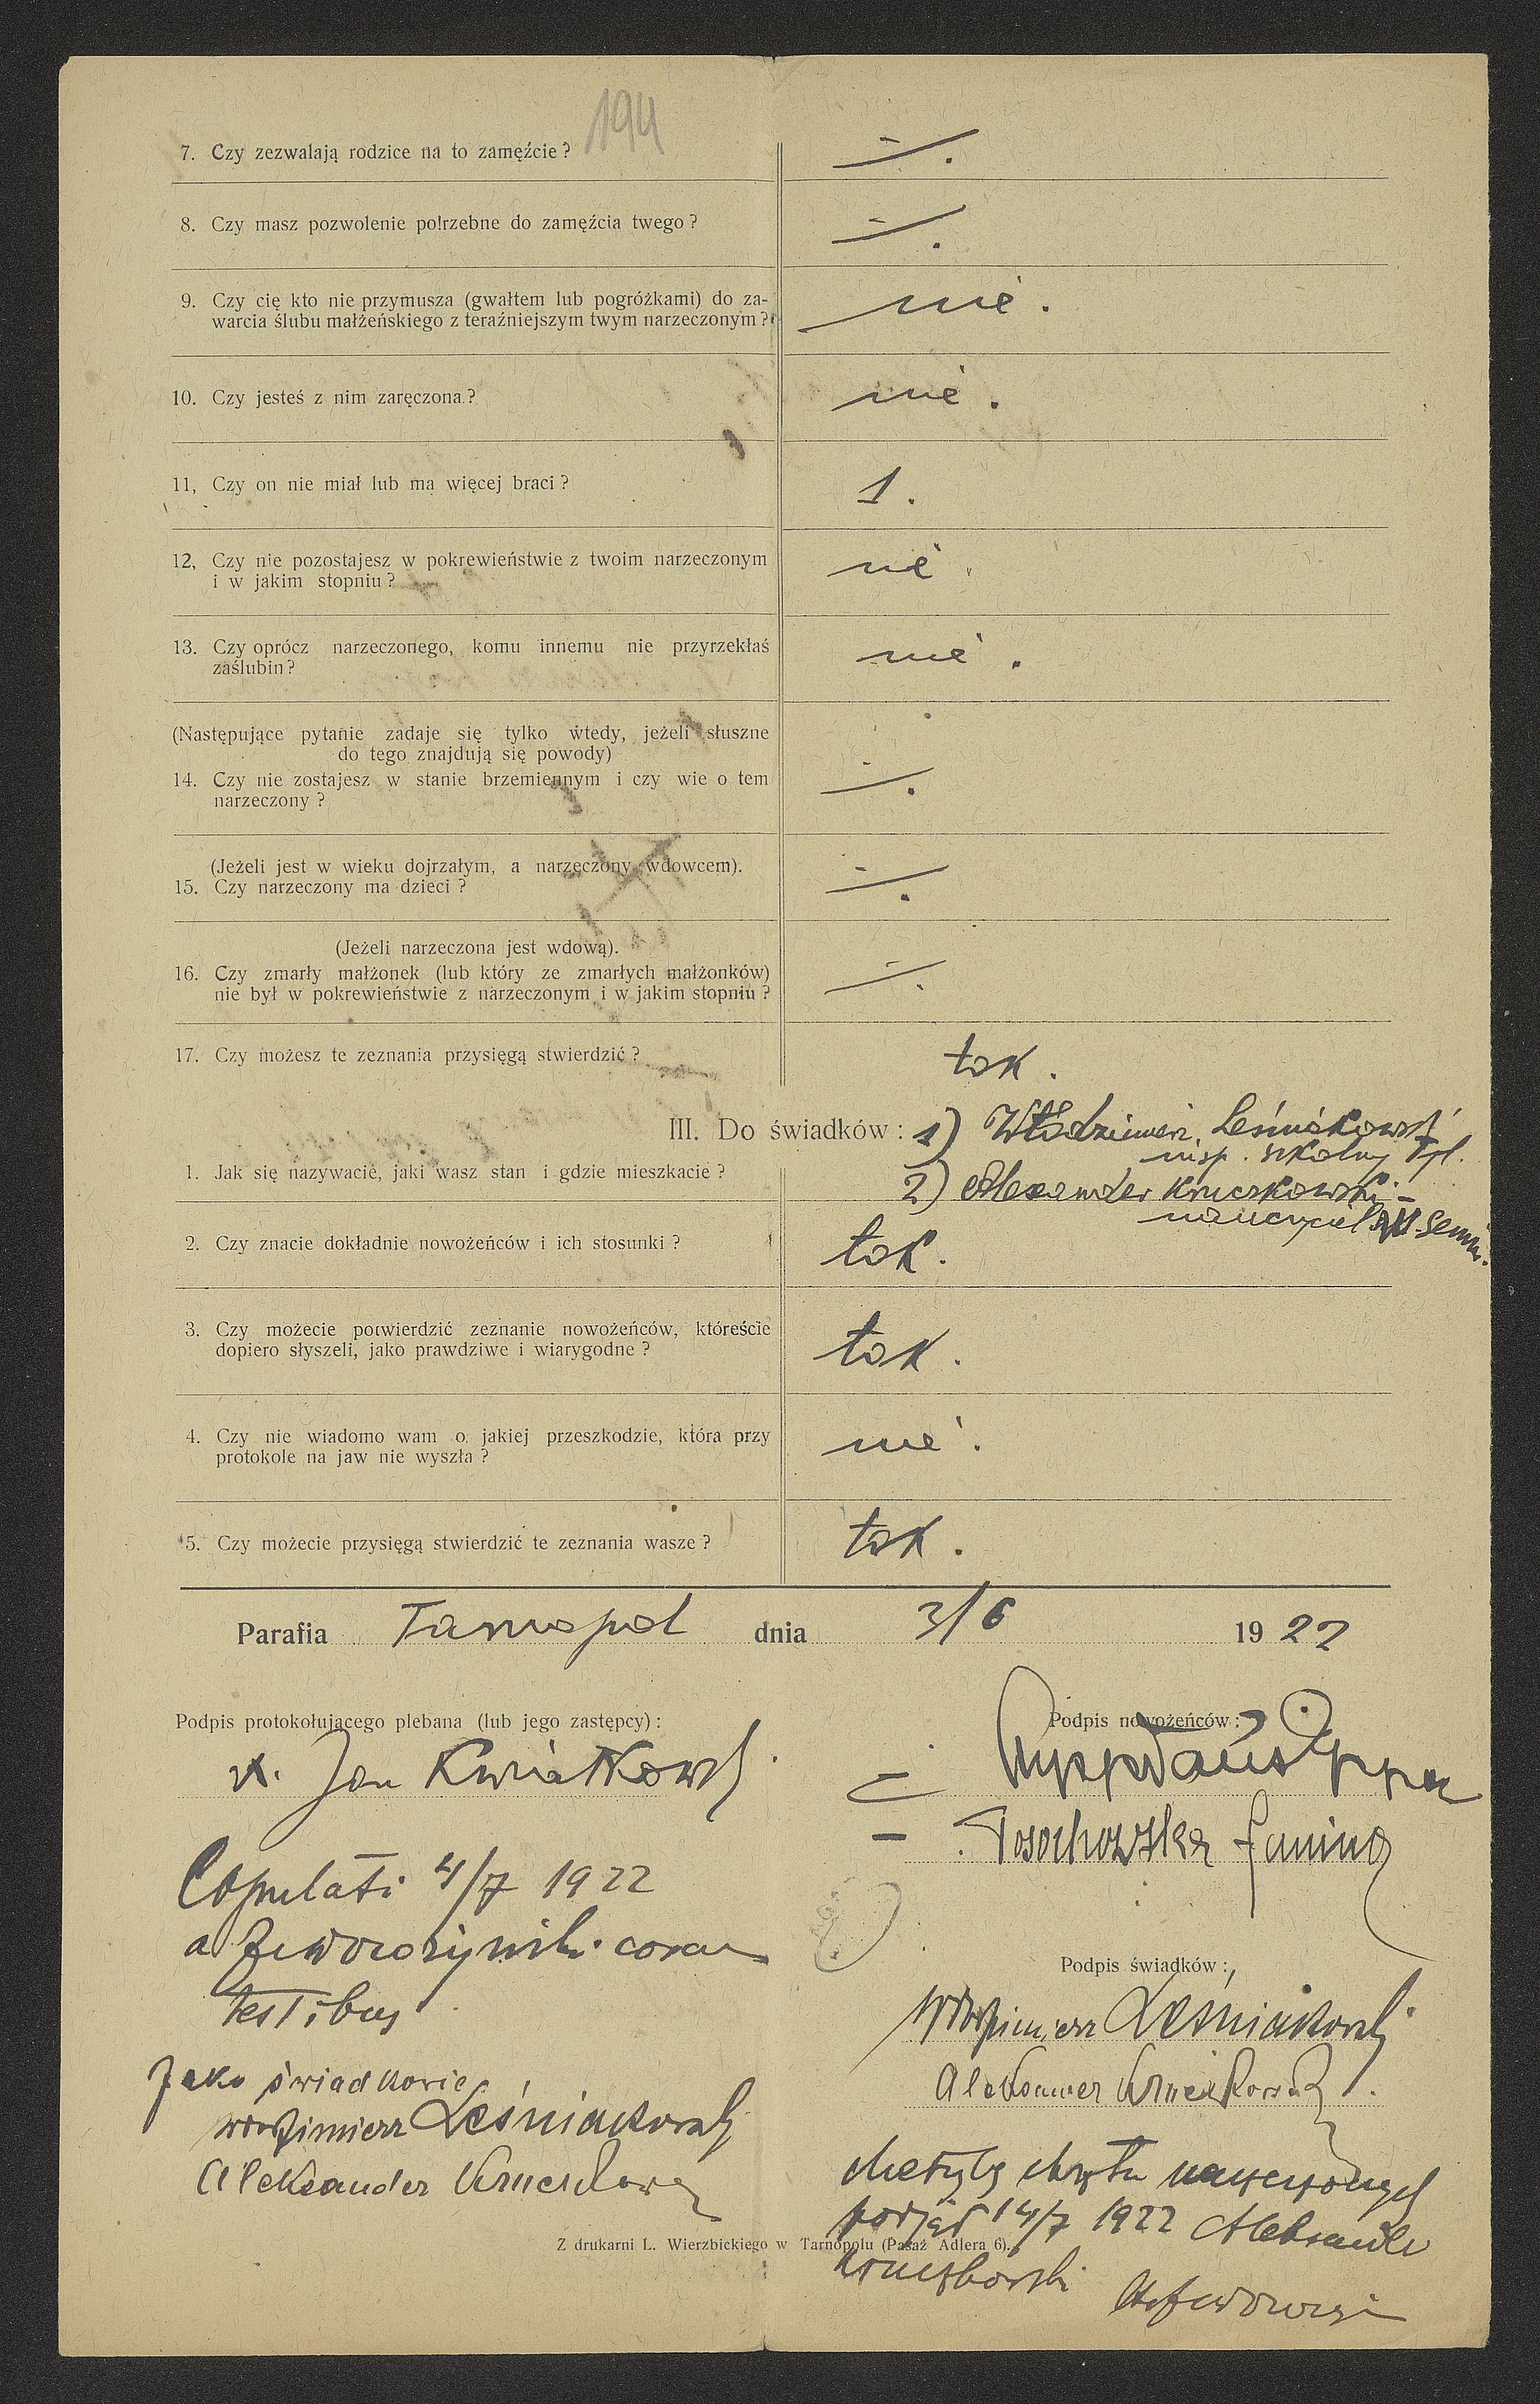 194
7. Czy zezwalają rodzice na to zamęźcie?
8. Czy masz pozwolenie potrzebne do zamęźcia twego?
9. Czy cię kto nie przymusza (gwałtem lub pogróżkami) do za-
warcia ślubu małżeńskiego z teraźniejszym twym narzeczonym?
nie.
10. Czy jesteś z nim zaręczona?
nie.
11, Czy on nie miał lub ma więcej braci?
1.
12, Czy nie pozostajesz w pokrewieństwie z twoim narzeczonym
i w jakim stopniu?
nie.
13. Czy oprócz narzeczonego, komu innemu nie przyrzekłaś
zaślubin?
nie.
(Następujące pytanie zadaje się tylko wtedy, jeżeli słuszne
do tego znajdują się powody)
14. Czy nie zostajesz w stanie brzemiennym i czy wie o tem
narzeczony?
(Jeżeli jest w wieku dojrzałym, a narzęczony wdowcem).
15. Czy narzeczony ma dzieci?
(Jeżeli narzeczona jest wdową).
16. Czy zmarły małżonek (lub który ze zmarłych małżonków)
nie był w pokrewieństwie z narzeczonym i w jakim stopniu?
17. Czy możesz te zeznania przysięgą stwierdzić?
tak.
III. Do świadków: 1) Włodzimierz Leśniakowski
insp. szkolny Tpl.
1. Jak się nazywacie, jaki wasz stan i gdzie mieszkacie?
2) Alexander Kruczkowski -
nauczyciel semin.
2. Czy znacie dokładnie nowożeńców i ich stosunki?
tak.
3. Czy możecie potwierdzić zeznanie nowożeńców, któreście
dopiero słyszeli, jako prawdziwe i wiarygodne?
tak.
4. Czy nie wiadomo wam o jakiej przeszkodzie, która przy
protokole na jaw nie wyszła?
nie.
5. Czy możecie przysięgą stwierdzić te zeznania wasze?
tak.
Parafia Tarnopol dnia 3/6 1922
Podpis protokołującego plebana (lub jego zastępcy):
Podpis nowożeńców:
X. Jan Kwiatkowski
Posochowska Janina
Copulati 4/7 1922
a coram
testibus
Podpis świadków:
Włodzimierz Leśniakowski
Aleksander Kruczkowski
Jako świadkowie
Włodzimierz Leśniakowski
Aleksander Kruczkowski
Metykę chrztu
podjął 14/7 1922 Aleksander
Kruczkowski
Z drukarni L. Wierzbickiego w Tarnopolu (Pasaż Adlera 6).